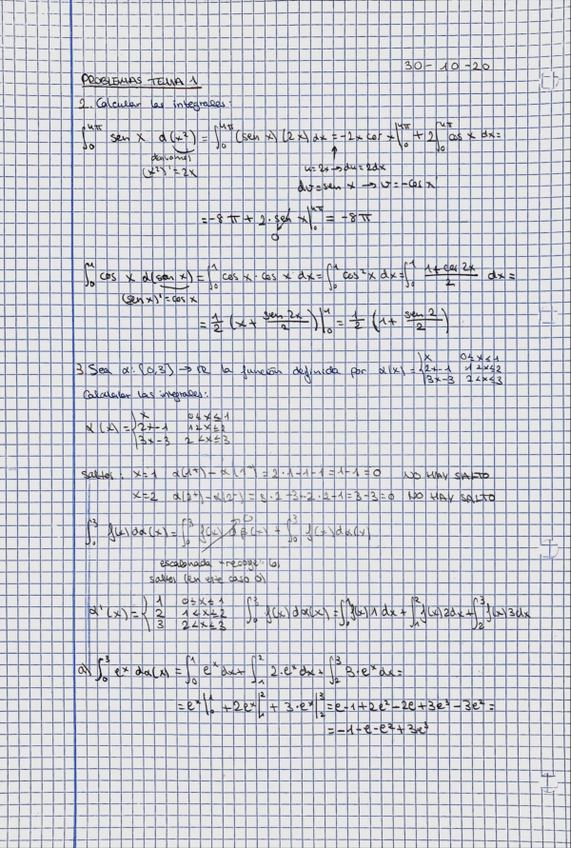 30-10-20
PROBLEMAS TEMA 1
2. Calcular las integrales:
∫₀^{4π} sen x d(x²) = ∫₀^{4π} (sen x)(2x) dx = -2x cos x |₀^{4π} + 2∫₀^{4π} cos x dx =
derivamos
(x²)' = 2x
u=2x → du=2dx
dv=sen x → v=-cos x
= -8π + 2·sen x |₀^{4π} = -8π
0
∫₀^1 cos x d(sen x) = ∫₀^1 cos x · cos x dx = ∫₀^1 cos²x dx = ∫₀^1 (1+cos 2x)/2 dx =
(sen x)' = cos x
= 1/2 (x + sen 2x/2) |₀^1 = 1/2 (1 + sen 2/2)
3. Sea α: [0,3] → ℝ la función definida por α(x) = { x 0≤x≤1
2x-1 1<x≤2
3x-3 2<x≤3
Calcular las integrales:
α(x) = { x 0≤x≤1
2x-1 1<x≤2
3x-3 2<x≤3
saltos: x=1 α(1⁺) - α(1⁻) = 2·1-1-1 = 1-1 = 0 NO HAY SALTO
x=2 α(2⁺) - α(2⁻) = 3·2-3-2·2-1 = 3-3 = 0 NO HAY SALTO
∫₀^3 f(x) dα(x) = ∫₀^3 f(x) dβ(x) + ∫₀^3 f(x) dα(x)
0
escalonada → recoge los
saltos (en este caso 0)
α'(x) = { 1 0≤x≤1
2 1<x≤2
3 2<x≤3
∫₀^3 f(x) dα(x) = ∫₀^1 f(x) 1 dx + ∫₁^2 f(x) 2dx + ∫₂^3 f(x) 3dx
a) ∫₀^3 eˣ dα(x) = ∫₀^1 eˣ dx + ∫₁^2 2·eˣ dx + ∫₂^3 3·eˣ dx =
= eˣ |₀^1 + 2eˣ |₁^2 + 3·eˣ |₂^3 = e-1+2e²-2e+3e³-3e² =
= -1-e-e²+3e³